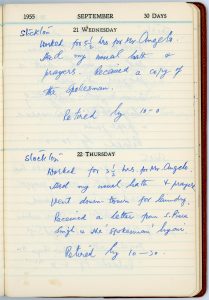 1955 SEPTEMBER 30 DAYS
21 WEDNESDAY
Stockton
Worked for 5½ hrs for Mr. Angelo.
Had my usual bath &
prayers. Received a copy of
the Spokesman.
Retired by 10-0
22 THURSDAY
Stockton
Worked for 5½ hrs. for Mr. Angelo.
Had my usual bath & prayers
Went down town for laundry.
Received a letter from S.
Singh & the 'Spokesman'
Retired by 10-30.